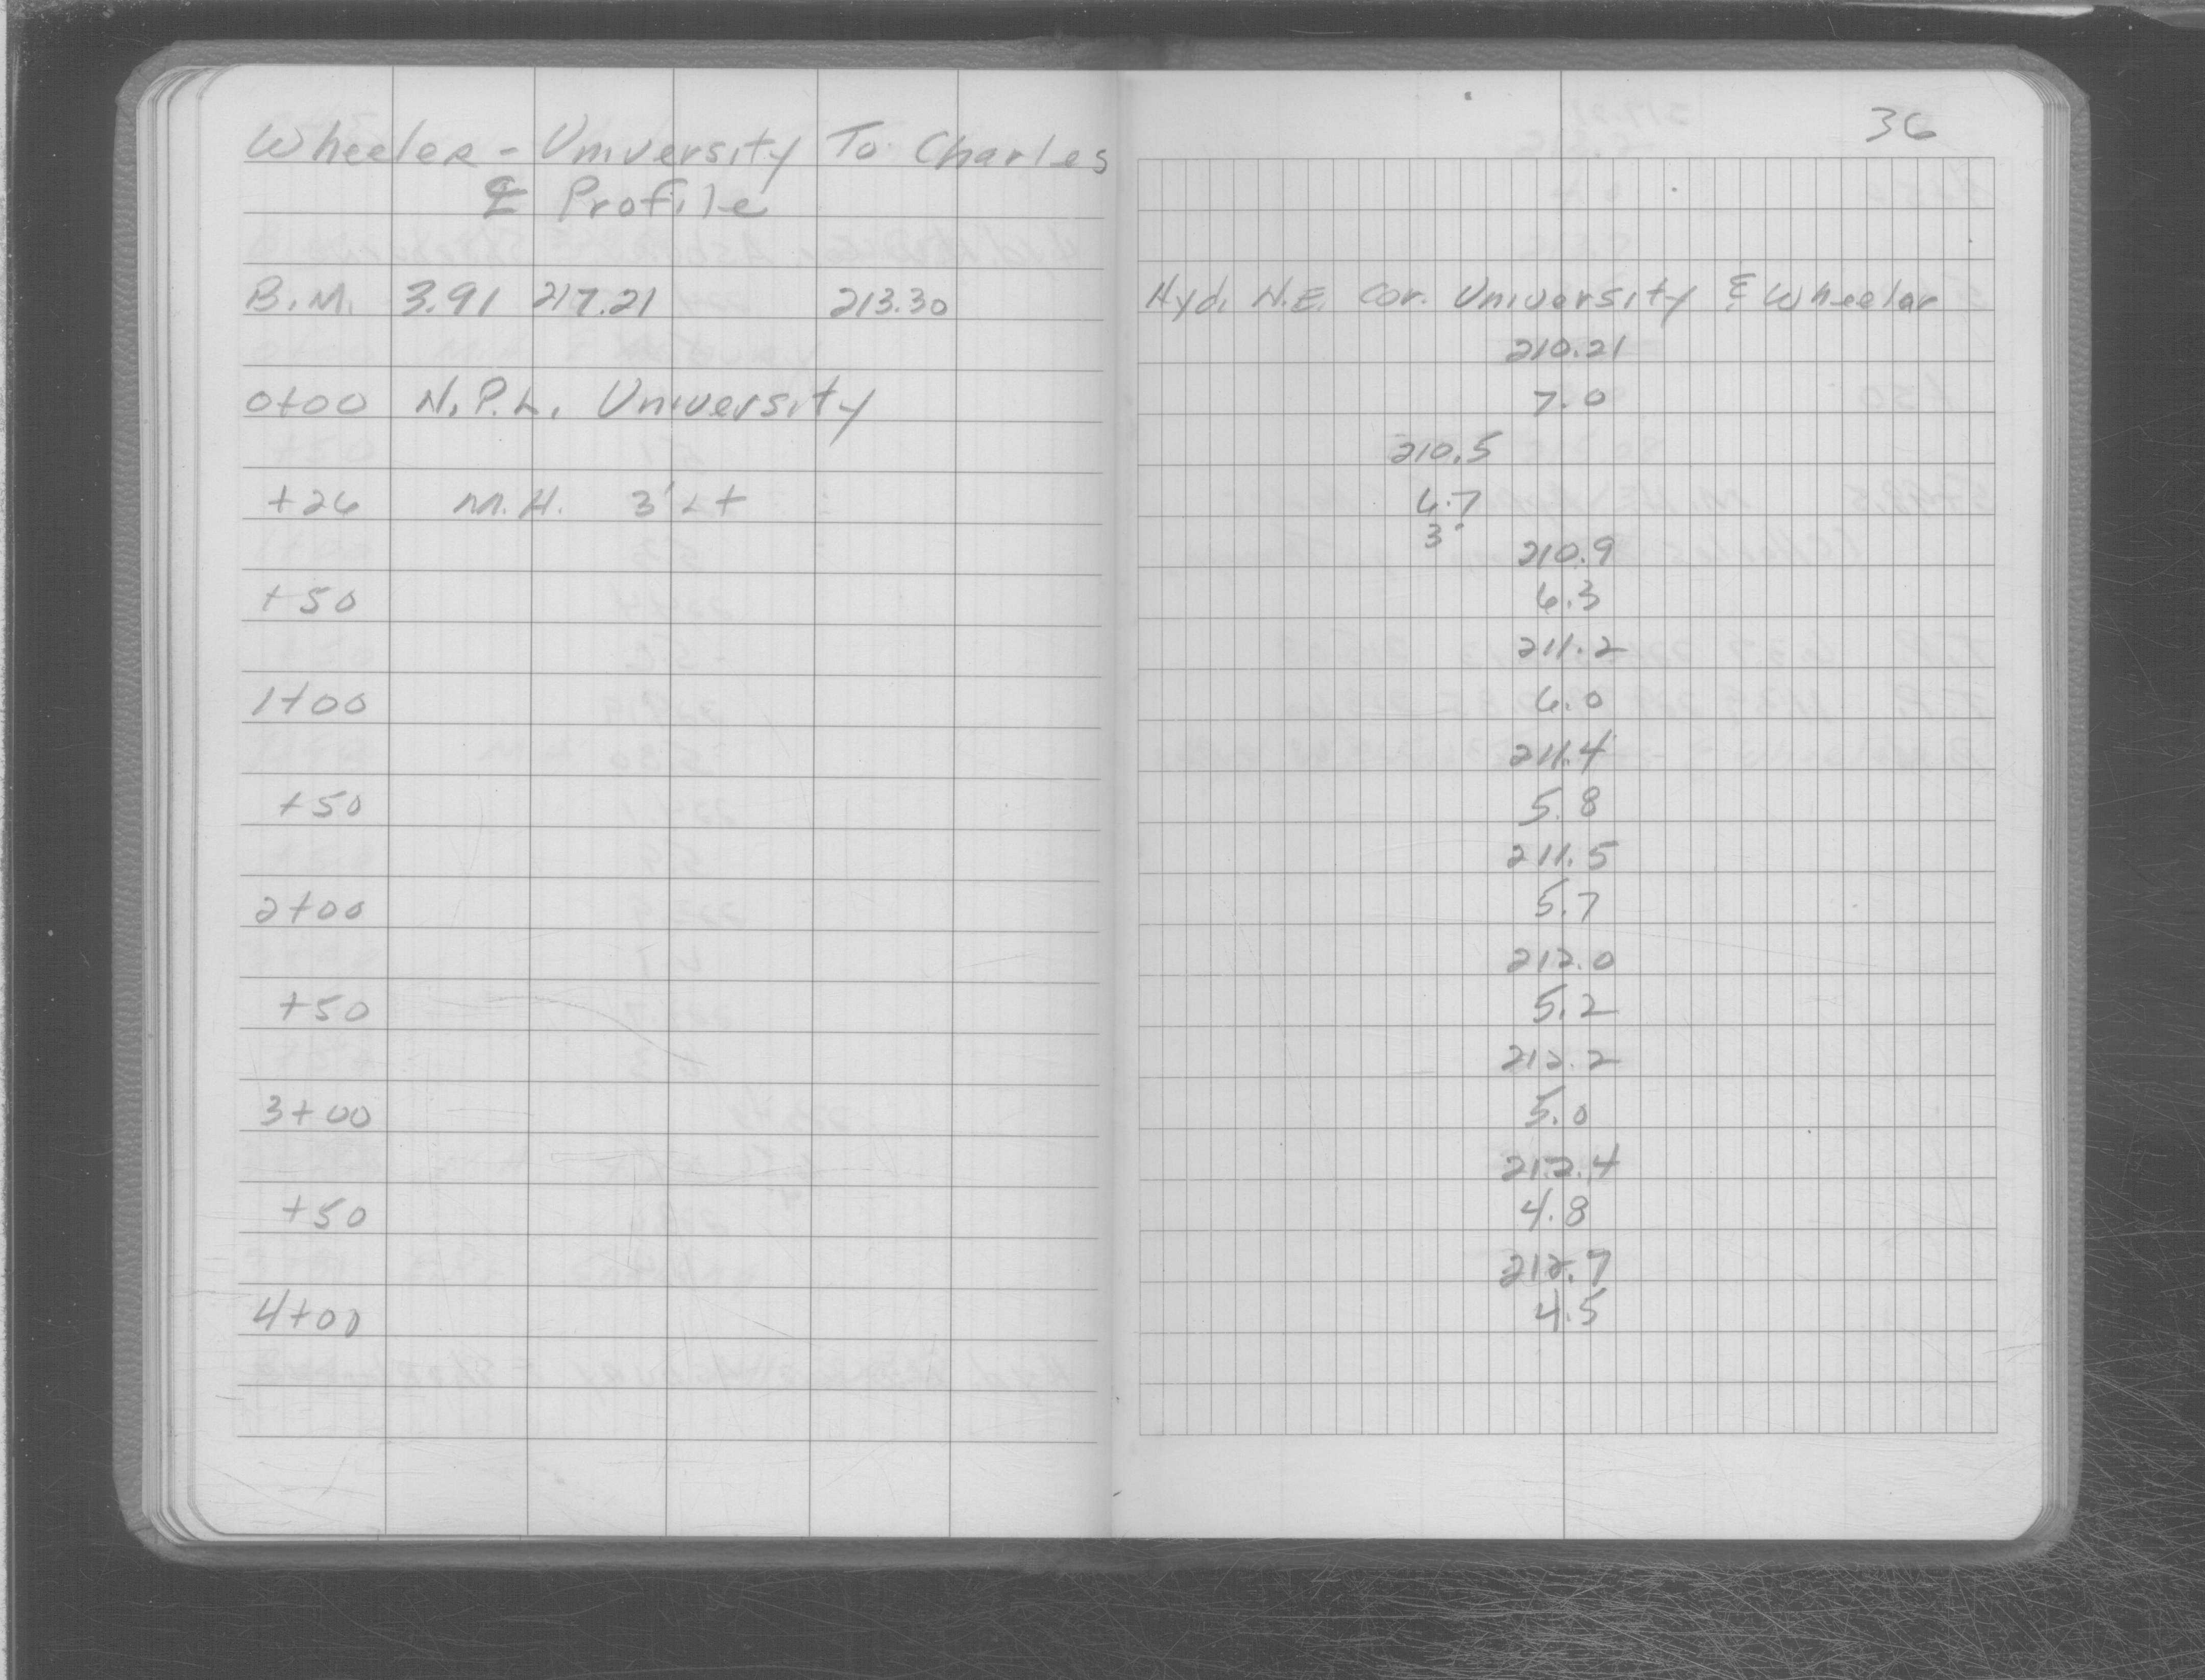 Wheeler - University To Charles
℄ Profile
B.M. 3.91 217.21 213.30
0+00 N.P.L. University
+26 M.H. 3' Lt
+50
1+00
+50
2+00
+50
3+00
+50
4+00
36
Hyd. N.E. Cor. University & Wheeler
210.21
7.0
210.5
6.7
3'
210.9
6.3
211.2
6.0
211.4
5.8
211.5
5.7
212.0
5.2
212.2
5.0
212.4
4.8
212.7
4.5